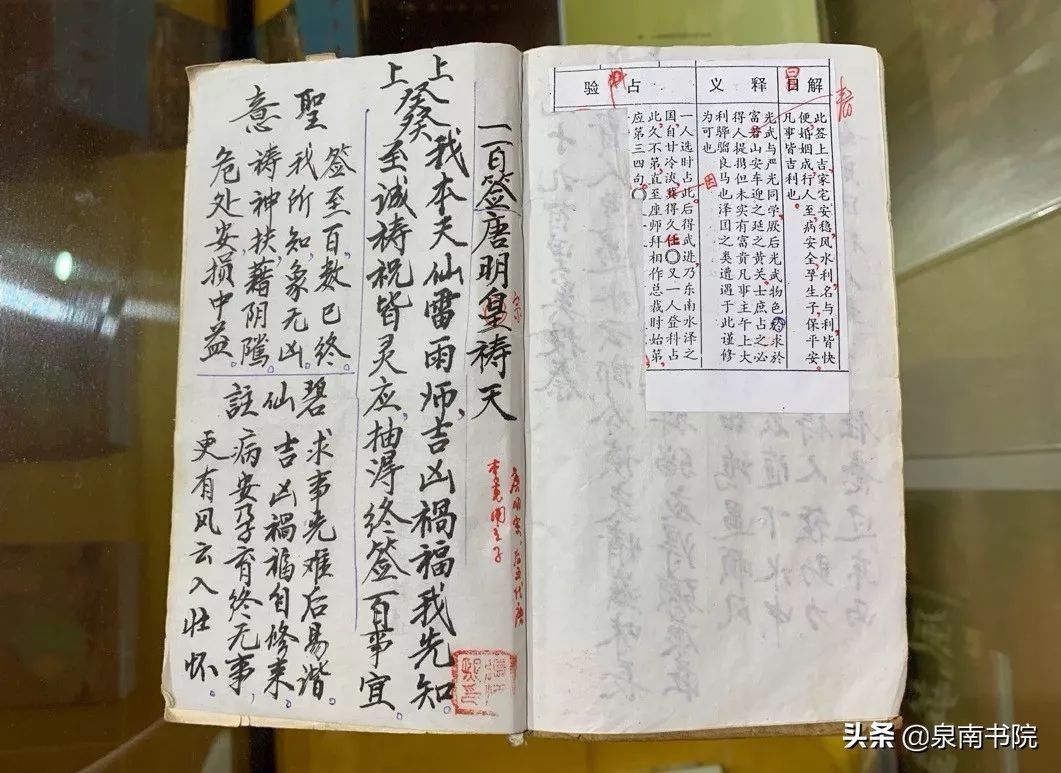 一百签唐明皇祷天
宗
上上
癸癸
我本天仙雷雨师、吉凶祸福我先知。
至诚祷祝皆灵应、抽得终签百事宜。
聖意
签至百数已终
我所知象无凶
祷神扶、藉阴騭
危处安损中益。
碧仙註
求事先难后易谐
吉凶祸福自修来
病安孕有终无事、
更有风云入壮怀。
解曰
此签上吉、家宅安稳、风水利、名与利皆快
便、婚姻成、行人至、病安全、孕生子、保平安。
凡事皆吉利也。
释义
光武与严光同学、厥后光武物色求於
富春山安车迎之延之黄关士庶占之必
得人提携但未实有富贵凡事主午上大
利骅骝良马也泽国之类遭遇于此谨修
为可也
占验
一人选时占此后得武进乃东南水泽之
国自甘冷淡冀得久任〇又一人登科占
此久不第、直至座师拜相作总裁时始第、
应第三四句〇
春
因
头条 @泉南书院